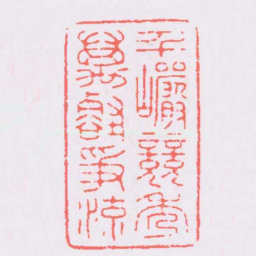 千巖競秀
萬壑爭流